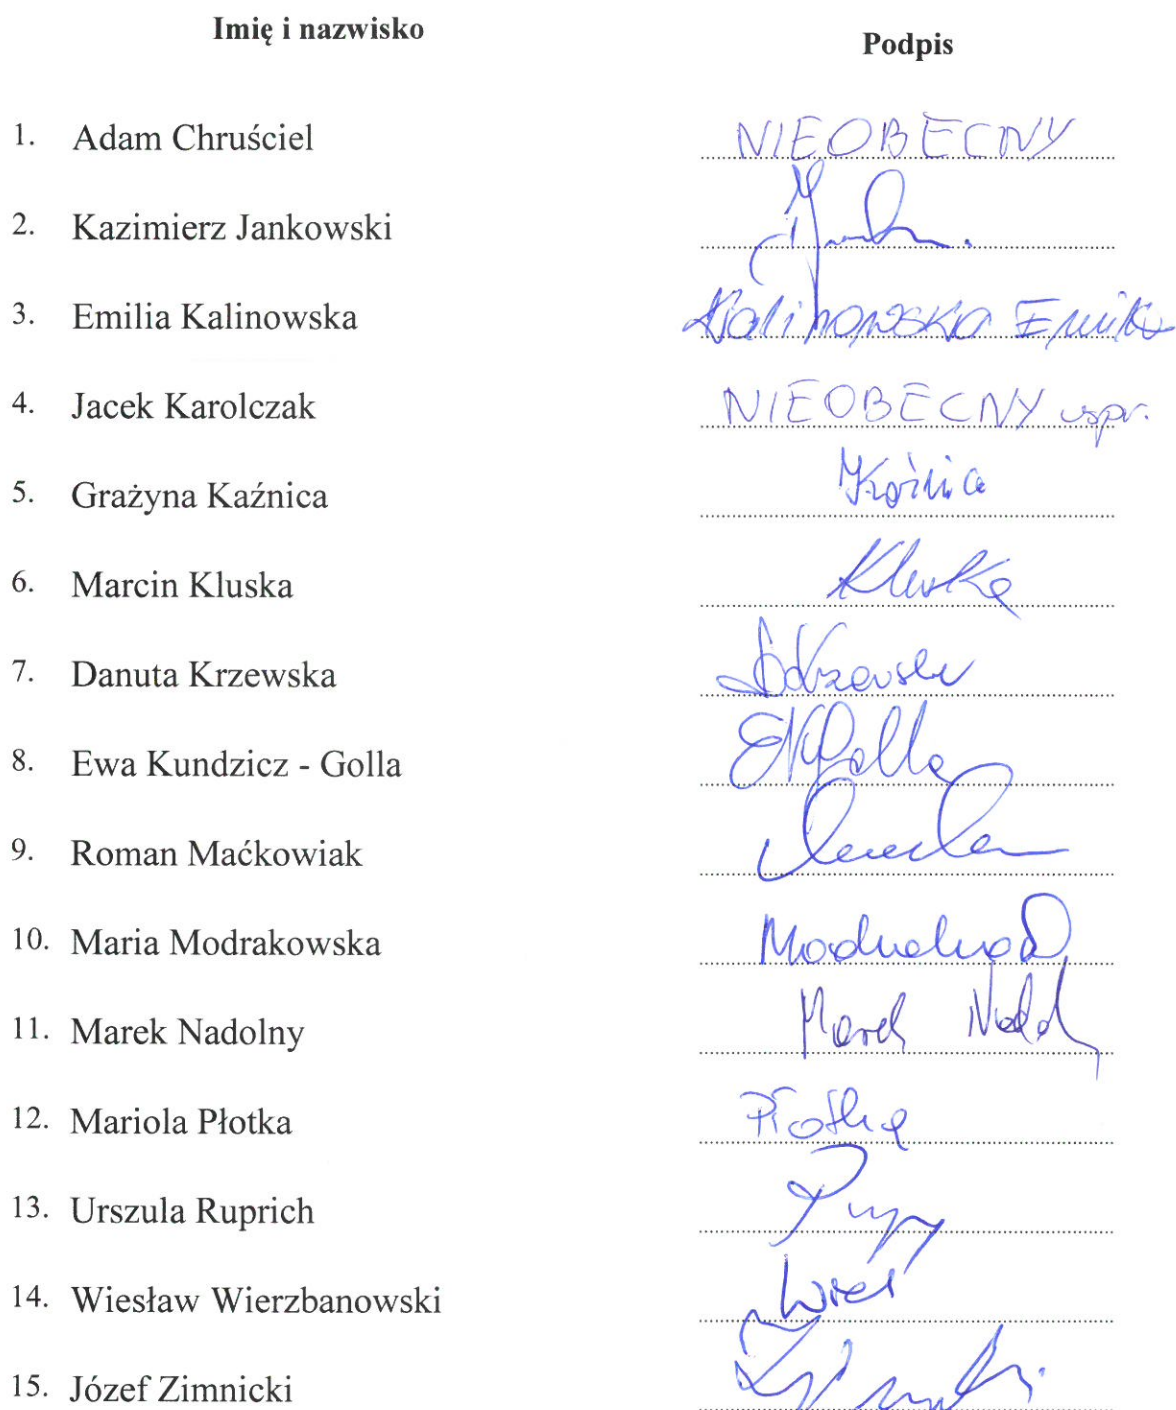 Imię i nazwisko Podpis
1. Adam Chruściel NIEOBECNY
2. Kazimierz Jankowski
3. Emilia Kalinowska Kalinowska Emilia
4. Jacek Karolczak NIEOBECNY uspr.
5. Grażyna Kaźnica Kaźnica
6. Marcin Kluska Kluska
7. Danuta Krzewska DKrzewska
8. Ewa Kundzicz - Golla EKGolla
9. Roman Maćkowiak
10. Maria Modrakowska
11. Marek Nadolny Marek
12. Mariola Płotka Płotka
13. Urszula Ruprich
14. Wiesław Wierzbanowski
15. Józef Zimnicki